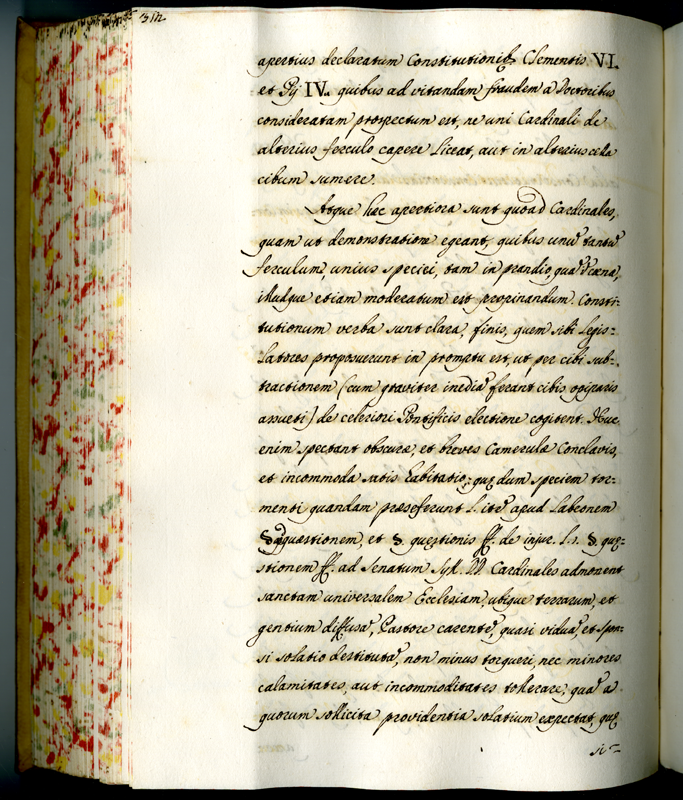 312
apertius declaratum Constitutionib; Clementis VI.
et Pij IV. quibus ad vitandam fraudem a Doctoribus
consideratam prospectum est, ne uni Cardinali de
alterius ferculo capere liceat, aut in alterius cella
cibum sumere.
Atque hæc apertiora sunt quoad Cardinales,
quam ut demonstratione egeant, quibus unũ tantũ
ferculum, unius speciei, tam in prandio, quã cæna,
illudque etiam moderatum est propinandum. Consti-
tutionum verba sunt clara, finis, quem sibi legis-
latores proposuerunt in promptu est, ut per cibi sub-
tractionem (cum graviter inediã ferant cibis opiparis
assueti) de celeriori Pontificis electione cogitent. Huc
enim spectant obscuræ, et breves Camerulæ Conclavis,
et incommoda satis habitatio, quę dum speciem tor-
menti quandam præseferunt l. itẽ apud Labeonem
§ quæstionem, et § quęstionis ff. de injur. l. 1. § quę-
stionem ff. ad Senatum Syll. Cardinales admonent
sanctam universalem Ecclesiam, ubique terrarum, et
gentium diffusã, Pastore carentẽ, quasi viduã, et spon-
si solatio destitutã, non minus torqueri, nec minores
calamitates, aut incommoditates tollerare, quã a
quorum sollicita providentia solatium expectat, quę
si-